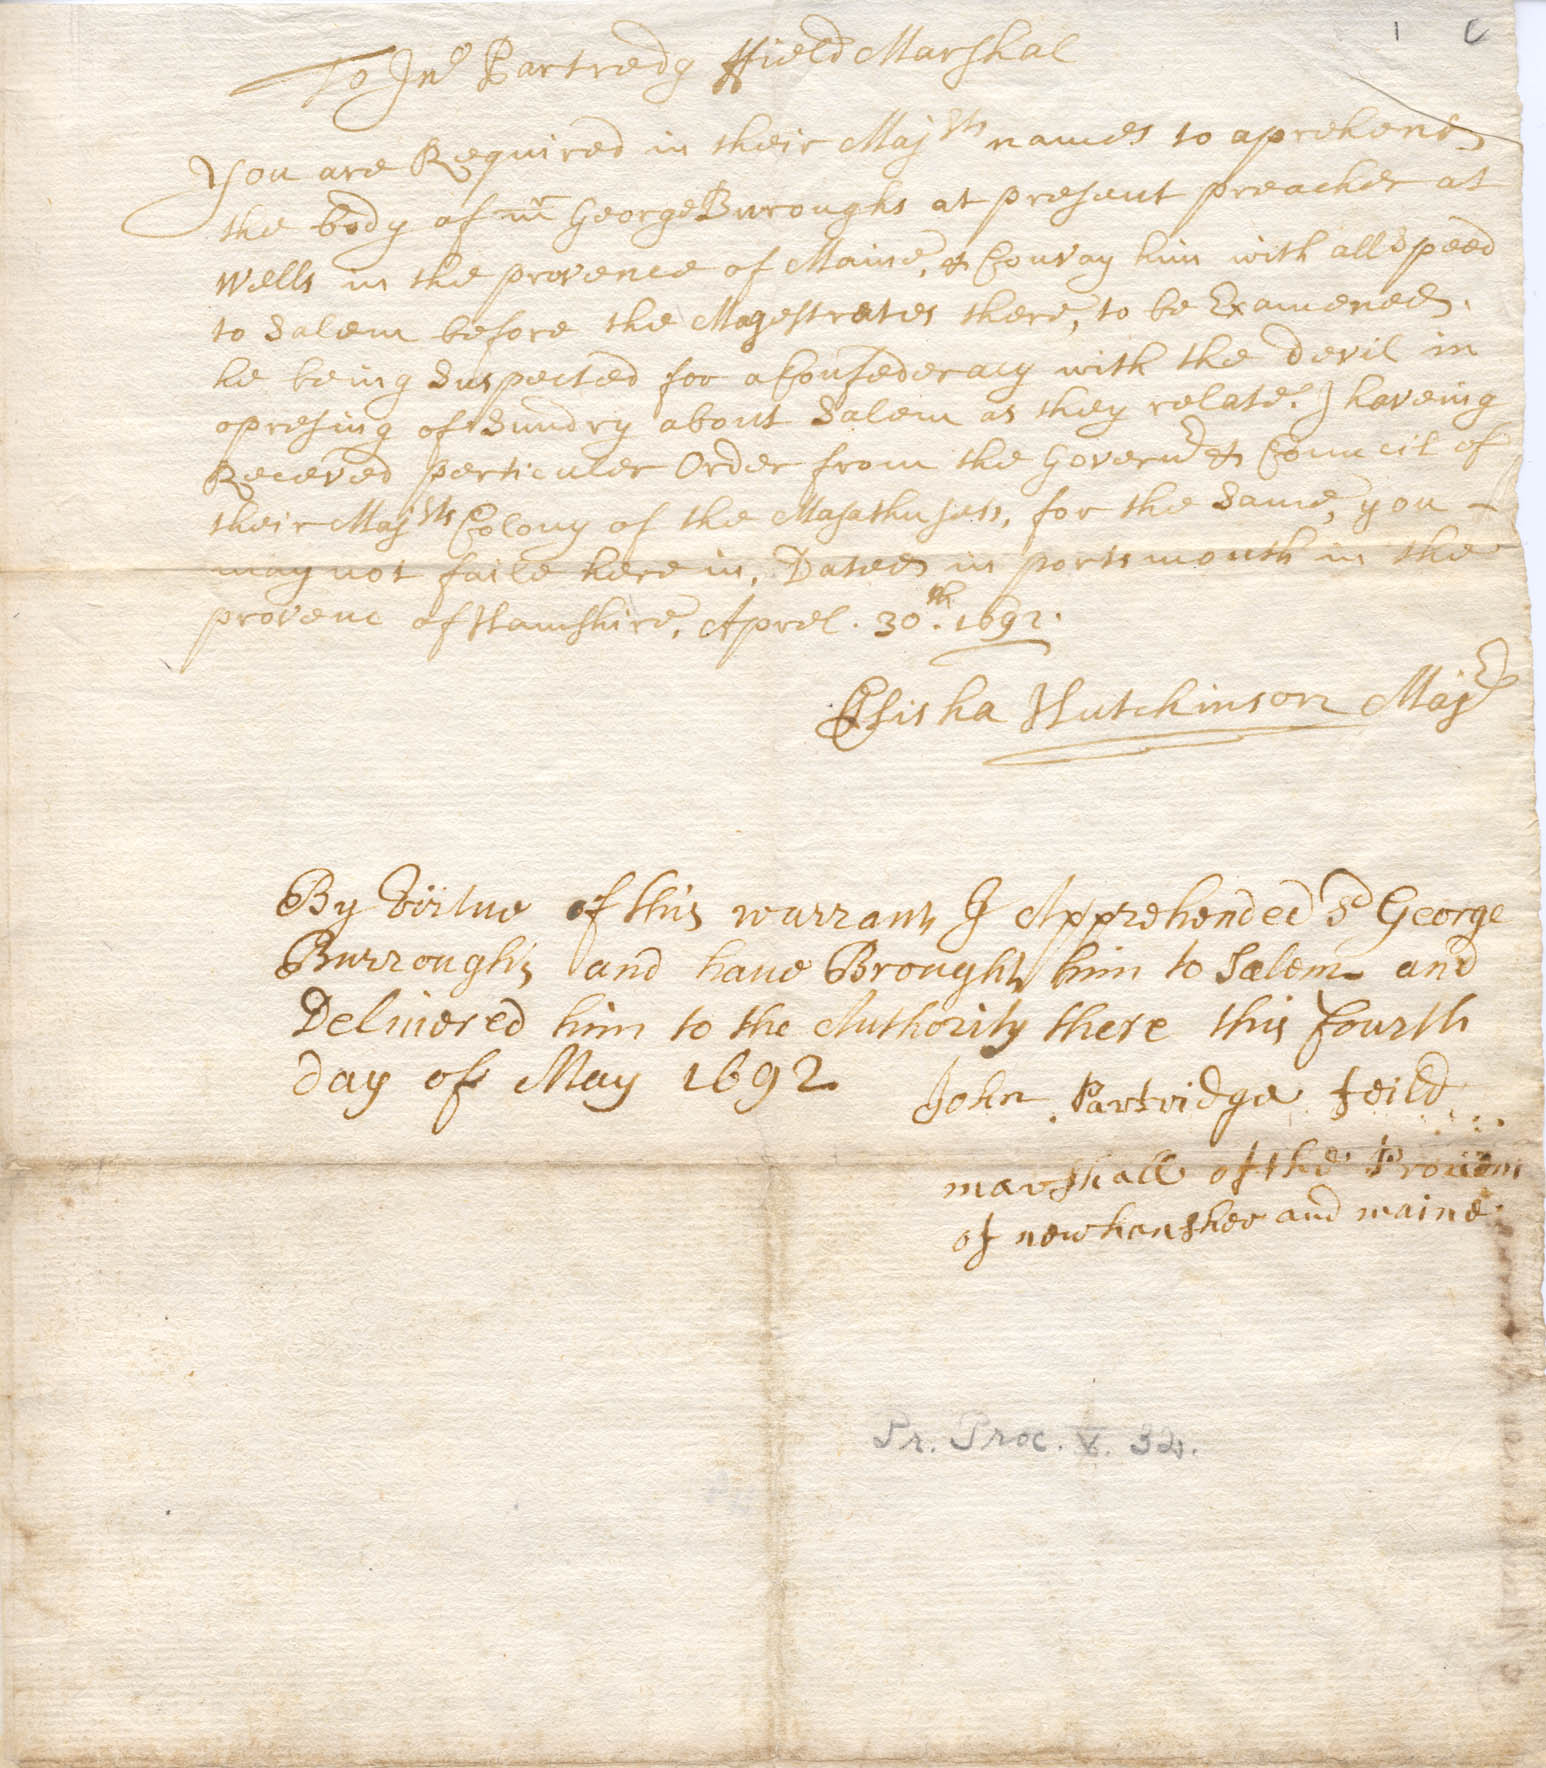 To Jno Partredg ffield Marshal
You are Required in their Majsts names to aprehend
the body of mr George Buroughs at present preacher at
Wells in the provence of Maine, & Convay him with all Speed
to Salem before the Magestrates there, to be Examened,
he being Suspected for a Confederacy with the devil in
opresing of Sundry about Salem as they relate. I haveing
Receved perticuler Order from the Governr & Council of
their Majsts Colony of the Masathusets, for the Same, you
may not faile herein, Dated in portsmouth in the
provenc of Hamshire, Aprel. 30th. 1692.
Elisha Hutchinson Majr
By Virtue of this warrant I Apprehended sd George
Burroughs and have Brought him to Salem and
Delivered him to the Authority there this fourth
day of May 1692
John Partridge feild
marshall of the Provenc
of newhansher and maine
Pr. Proc. 32.